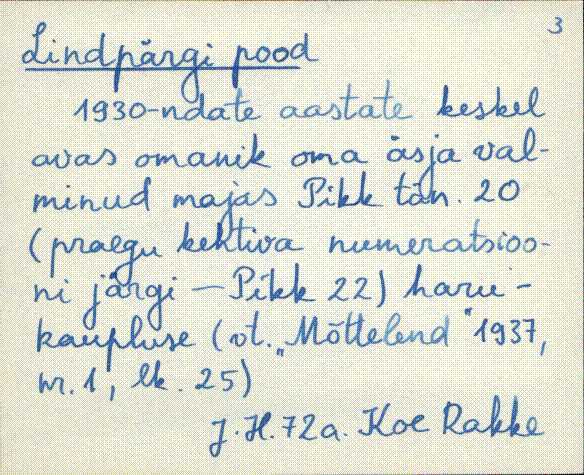 3
Lindpärgi pood
1930-ndate aastate keskel
avas omanik oma äsja val-
minud majas Pikk tän. 20
(praegu kehtiva numeratsioo-
ni järgi — Pikk 22) haru-
kaupluse (vt. „Mõttelend" 1937,
nr. 1, lk. 25)
J. H. 72 a. Koe Rakke